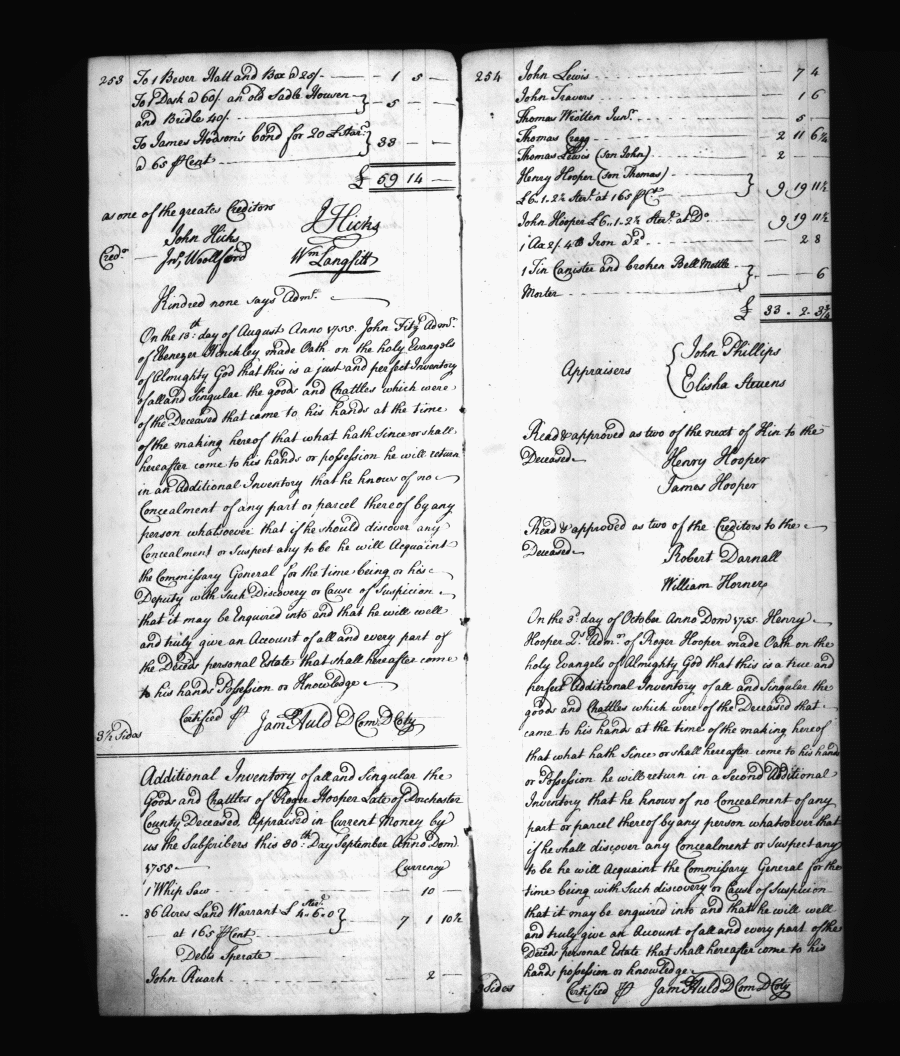 253 To 1 Bever Hatt and Box @ 25/. 1 5 —
To 1 Dask @ 60/. an old Sadle Housen
and Bridle 40/. 5 — —
To James Hodson's bond for 20 £ Ster.
@ 65 ⅌ Cent 33 — —
£ 59 14 —
as one of the greates Creditors
John Hicks J Hicks
Cred.rs Jn.o Woollford Wm Langfitt
Kindred none says Adm.r
On the 13th day of August Anno 1755. John Fitz Adm.r
of Ebenezer Hinckley made Oath on the holy Evangels
of Almighty God that this is a just and perfect Inventory
of all and Singular the goods and Chattles which were
of the Deceased that came to his hands at the time
of the making hereof that what hath Since or shall
hereafter come to his hands or possession he will return
in an Additional Inventory that he knows of no
Concealment of any part or parcel thereof by any
person whatsoever that if he should discover any
Concealment or Suspect any to be he will Acquaint
the Commissary General for the time being or his
Deputy with Such Discovery or Cause of Suspicion
that it may be Enquired into and that he will well
and truly give an Account of all and every part of
the Deced personal Estate that shall hereafter come
to his hands Possession or Knowledge
Certified ⅌ Jam Auld D Com D Coty
3½ Sides
Additional Inventory of all and Singular the
Goods and Chattles of Roger Hooper Late of Dorchester
County Deceased. Appraised in Current Money by
us the Subscribers this 30th Day September Anno Dom
1755 Currency
1 Whip Saw — 10 —
86 Acres Land Warrant £ 4..6..0 Ster.
at 165 ⅌ Cent 7 1 10½
Debts Sperate
John Ruark 2 —
254 John Lewis 7 4
John Travers 1 6
Thomas Wootten Jun.r 5 —
Thomas Cragg 2 11 6¼
Thomas Lewis (son John) 2 —
Henry Hooper (son Thomas)
£6..1..2½ Ster. at 165 ⅌ Ct 9 19 11½
John Hooper £6..1..2½ Ster. at Do 9 19 11½
1 Ax 2/. 4 lb Iron a 2d 2 8
1 Tin Canister and broken Bell Mettle
Morter — — 6
£ 33 . 2 . 3¼
Appraisers John Phillips
Elisha Stevens
Read & approved as two of the next of Kin to the
Deceased Henry Hooper
James Hooper
Read & approved as two of the Creditors to the
Deceased Robert Darnall
William Horner
On the 3d day of October Anno Dom 1755. Henry
Hooper Adm.r of Roger Hooper made Oath on the
holy Evangels of Almighty God that this is a true and
perfect Additional Inventory of all and Singular the
goods and Chattles which were of the Deceased that
came to his hand at the time of the making hereof
that what hath Since or shall hereafter come to his hands
or Possession he will return in a Second Additional
Inventory that he knows of no Concealment of any
part or parcel thereof by any person whatsoever that
if he shall discover any Concealment or Suspect any
to be he will Acquaint the Commissary General for the
time being with Such discovery or Cause of Suspicion
that it may be enquired into and that he will well
and truly give an Account of all and every part of the
Deced personal Estate that shall hereafter come to his
hands possession or knowledge
Sides Certified ⅌ Jam Auld D Com D Coty